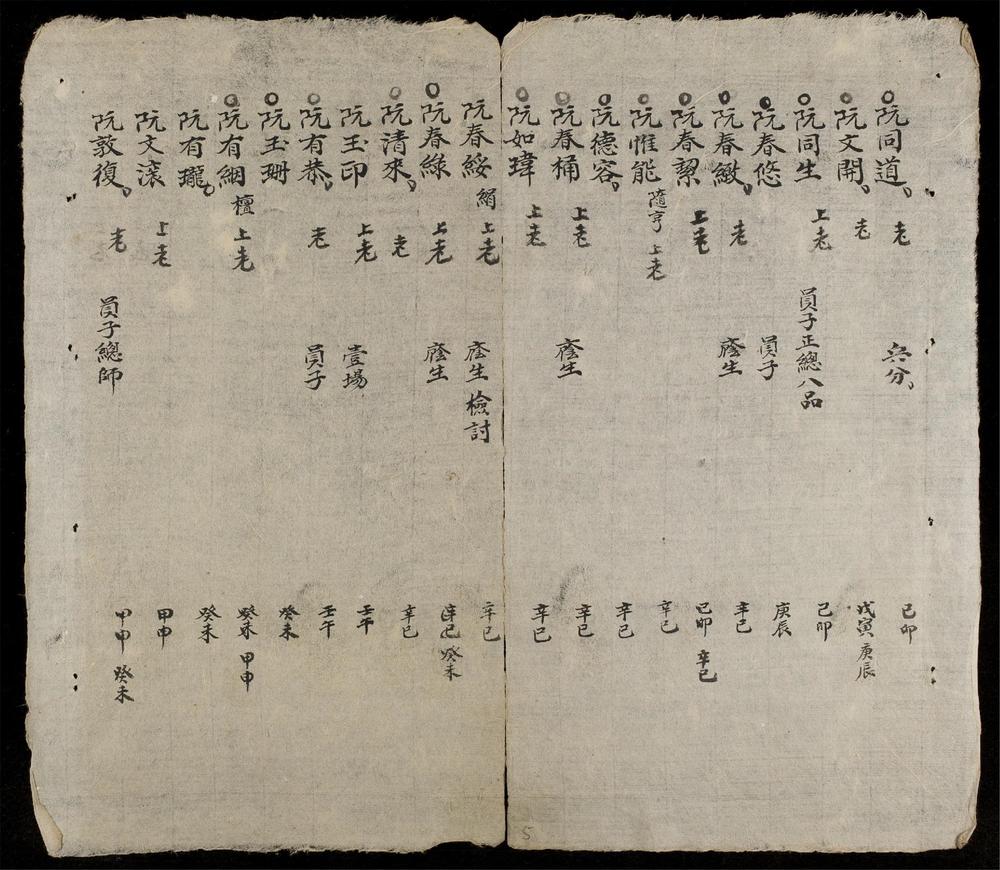 阮同道 老 兵分 己卯
阮文開 老 戊寅 庚辰
阮同生 上老 員子正總八品 己卯
阮春悠 員子 庚辰
阮春緻 老 廕生 辛巳
阮春潔 上老 己卯 辛巳
阮惟能 隨亨 上老 辛巳
阮德容 辛巳
阮春桶 上老 廕生 辛巳
阮如瑋 上老 辛巳
阮春綏 絹 上老 廕生 檢討 辛巳
阮春綠 上老 廕生 辛巳 癸未
阮清來 老 辛巳
阮玉印 上老 壹場 壬午
阮有恭 老 員子 壬午
阮玉珊 癸未
阮有綑 檀 上老 癸未 甲申
阮有瓏 癸未
阮文滾 上老 甲申
阮敦復 老 員子總師 甲申 癸未
5